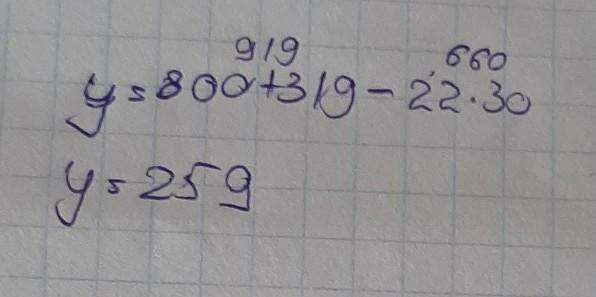 919 660
y = 800+319 - 22.30
y = 259